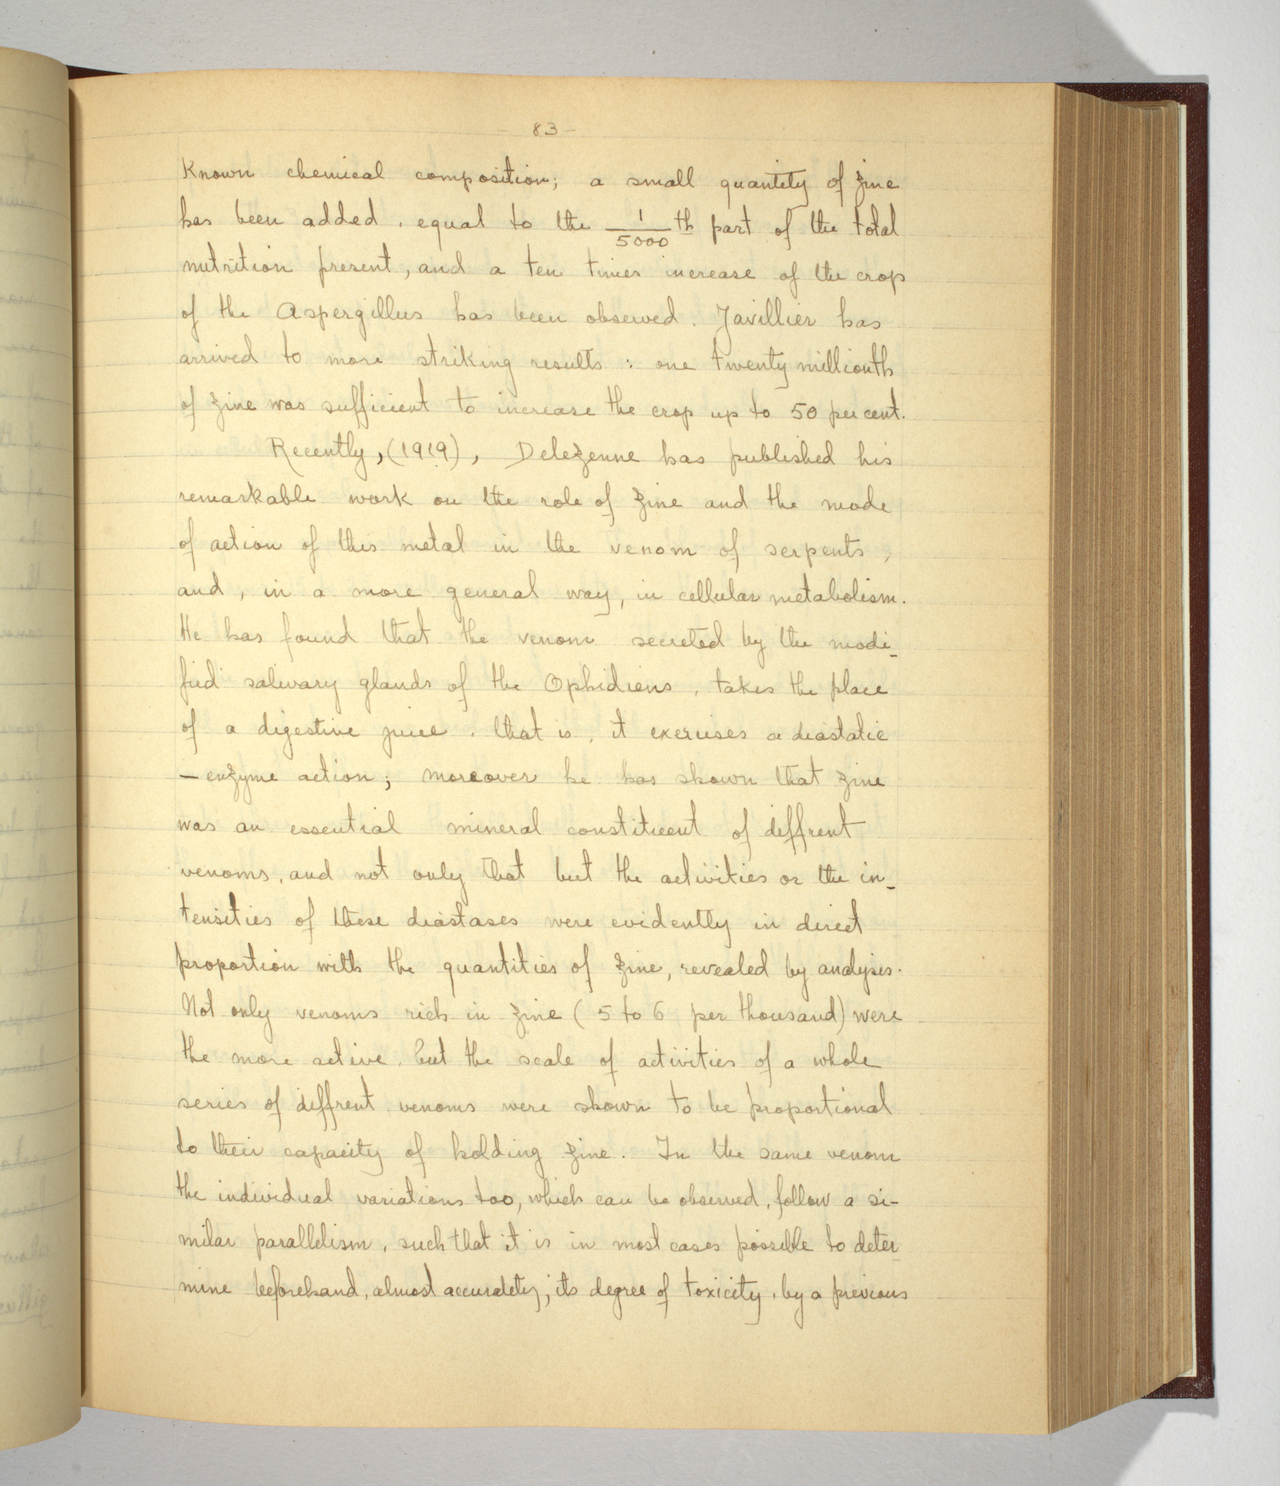 83-
Known chemical composition; a small quantity of zinc
has been added, equal to the 1/5000 th part of the total
nutrition present, and a ten times increase of the crop
of the Aspergillus has been observed. Javillier has
arrived to more striking results : one twenty millionth
of zinc was sufficient to increase the crop up to 50 per cent.
Recently, (1919), Delezenne has published his
remarkable work on the role of zinc and the mode
of action of this metal in the venom of serpents,
and, in a more general way, in cellular metabolism.
He has found that the venom secreted by the modi-
fied salivary glands of the Ophidiens, takes the place
of a digestive juice, that is, it exercises a diastatic
- enzyme action; moreover he has shown that zinc
was an essential mineral constituent of diffrent
venoms, and not only that but the activities or the in-
tensities of these diastases were evidently in direct
proportion with the quantities of zinc, revealed by analysis.
Not only venoms rich in zinc (5 to 6 per thousand) were
the more active, but the scale of activities of a whole
series of diffrent venoms were shown to be proportional
to their capacity of holding zinc. In the same venom
the individual variations too, which can be observed, follow a si-
milar parallelism, such that it is in most cases possible to deter-
mine beforehand, almost accurately, its degree of toxicity, by a previous